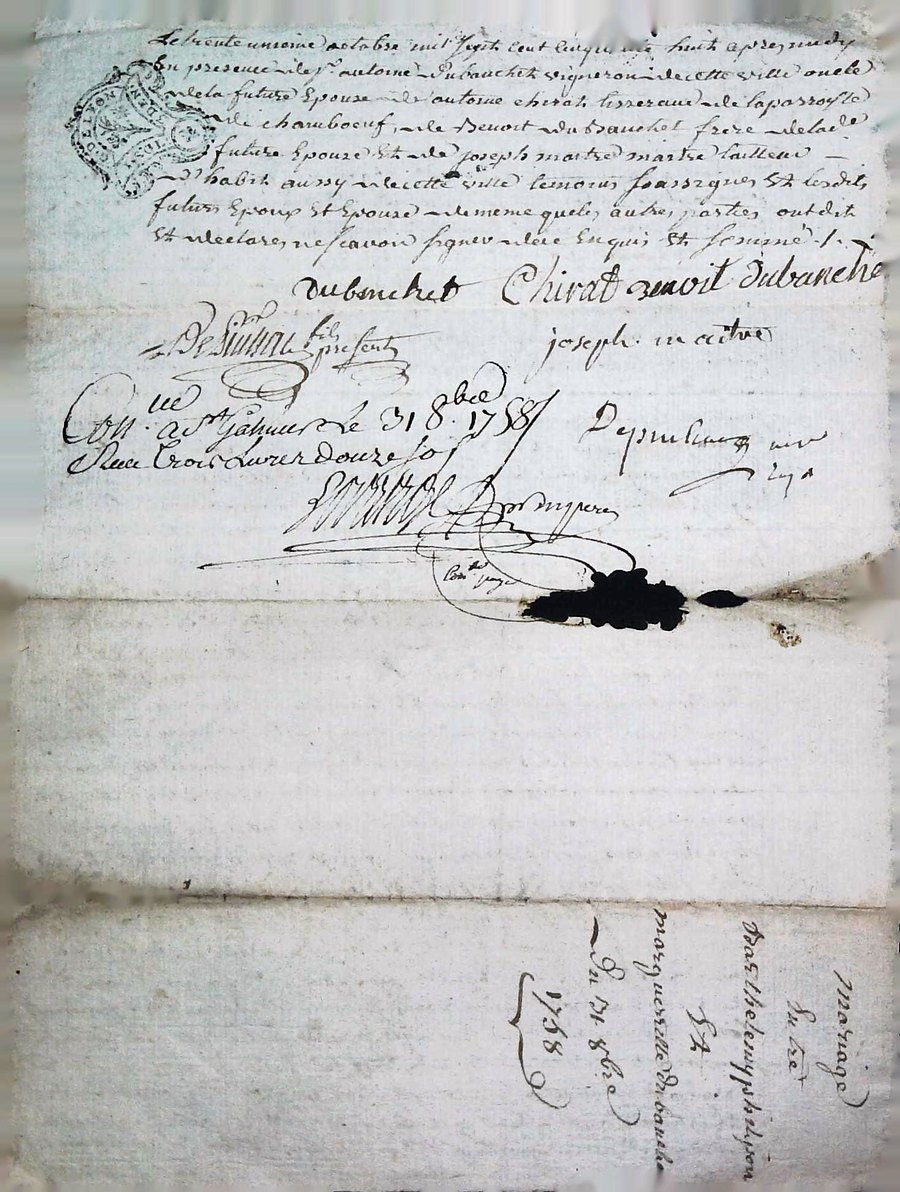 Le trente unieme octobre mil sept cent cinquante huit apres midy
En presence de Sr. antoine Dubanchet vigneron de cette ville oncle
de la future Epouse de antoine chirat tisserand de la parroisse
de chamboeuf, de Benoit du Banchet frere de lade
future Epouse Et de joseph maitre maitre tailleur
d'habit aussy de cette ville temoins soussignes Et lesdits
futurs Epoux Et Epouse de meme que les autres parties ont dit
Et declares ne scavoir signer de ce Enquis Et sommé /.
Dubanchet Chirat Benoit dubanche
fils present
joseph maitre
Con. le 31 8bre 1758
Reçu trois Livres douze sols
mariage
Entre
Barthelemy philipon
Et
margueritte dubanche
Du 31 8bre
1758